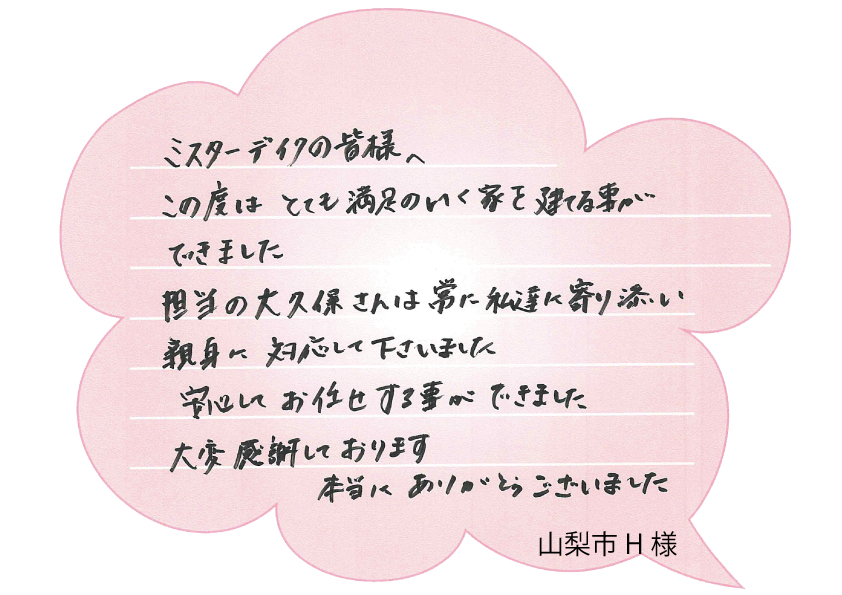 ミスターデイクの皆様へ
この度は とても満足のいく家を建てる事が
できました
担当の大久保さんは常に私達に寄り添い
親身に 対応して下さいました
安心して お任せする事が できました
大変感謝しております
本当に ありがとうございました
山梨市 H 様